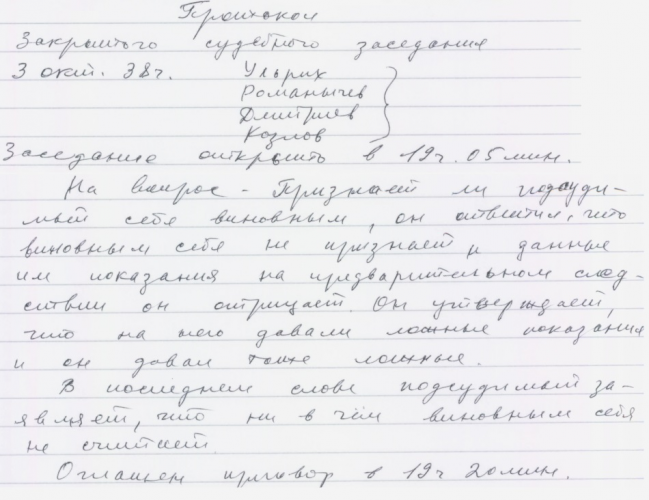 Протокол
Закрытого судебного заседания
3 окт. 38г. Ульрих
Романычев
Дмитриев
Козлов
Заседание открыть в 19г. 05 мин.
На вопрос - Признает ли подсуди-
мый себя виновным, он ответил, что
виновным себя не признает и данные
им показания на предварительном след-
ствии он отрицает. Он утверждает,
что на него давали ложные показания
и он давал тоже ложные.
В последнем слове подсудимый за-
являет, что ни в чём виновным себя
не считает.
Оглашен приговор в 19ч 20 мин.